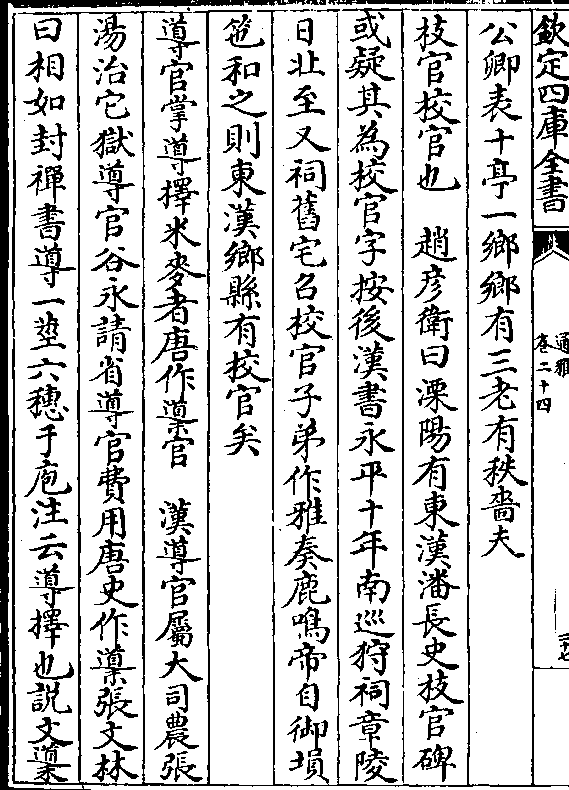 欽定四庫全書
通雅
卷二十四
公卿表十亭一鄉鄉有三老有秩嗇夫
技官校官也　趙彦衛曰溧陽有東漢潘長史技官碑
或疑其為校官字按後漢書永平十年南巡狩祠章陵
日北至又祠舊宅召校官子弟作雅奏鹿鳴帝自御塤
箎和之則東漢鄉縣有校官矣
導官掌導擇米麥者唐作䆃官　漢導官屬大司農張
湯治它獄導官谷永請省導官費用唐史作䆃張文林
曰相如封禪書導一莖六穗于庖注云導擇也説文䆃